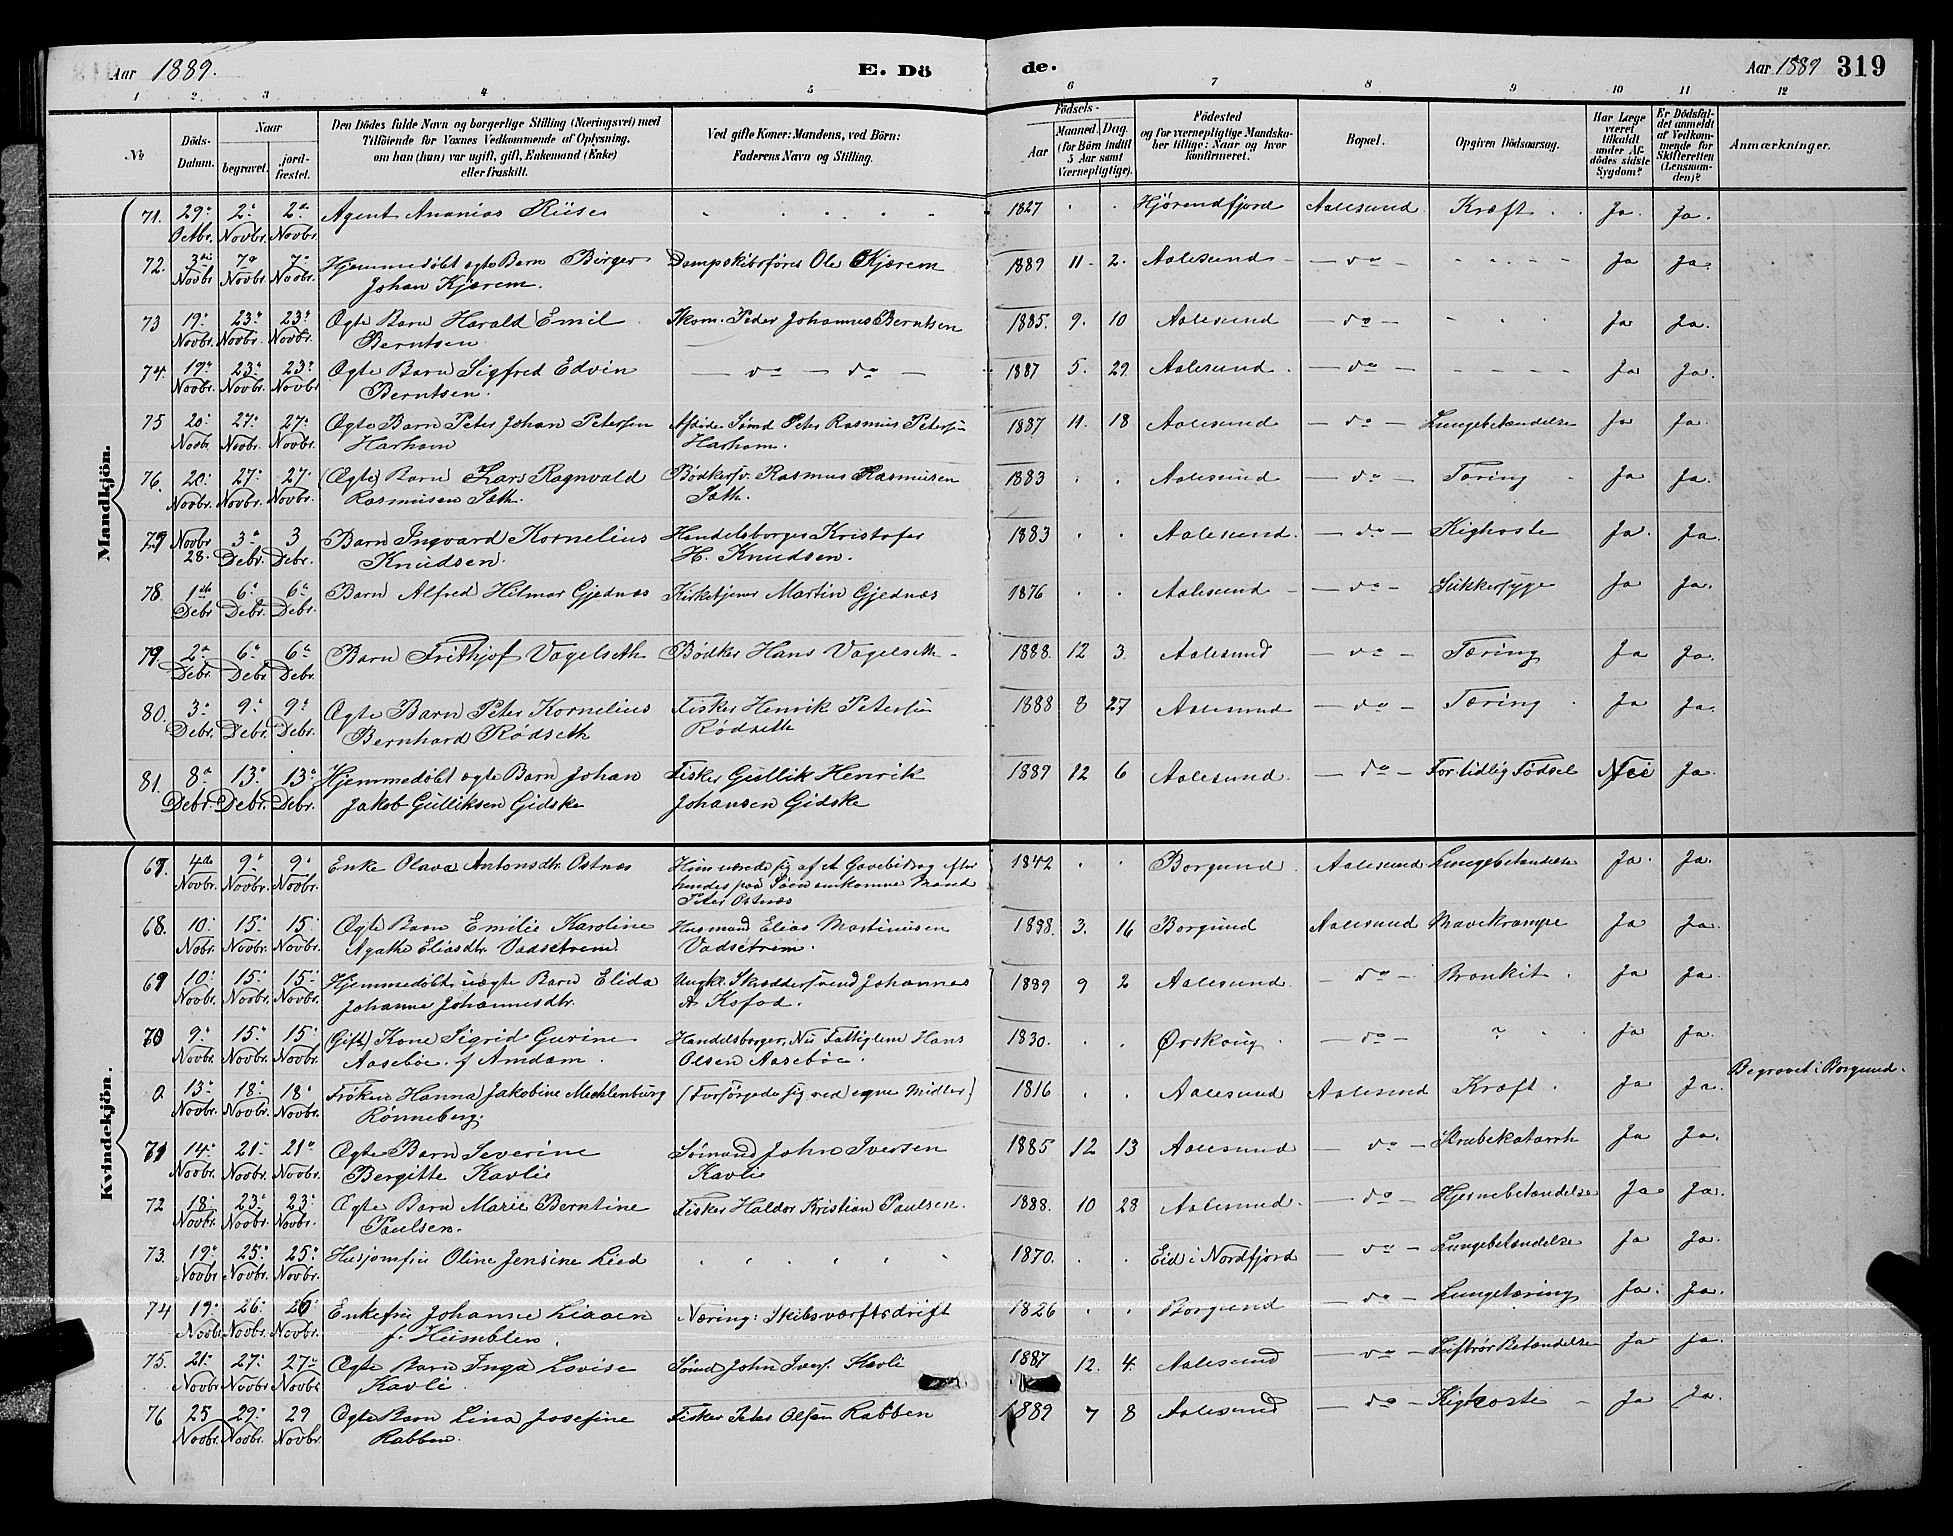 Aar 1889. E. Dö de. Aar 1889 319
1 2 3 4 5 6 7 8 9 10 11 12
No
Döds-Datum.
Naar
begravet.
jord-fæstet.
Den Dödes fulde Navn og borgerlige Stilling (Næringsvei) med
Tilföiende for Voxnes Vedkommende af Oplysning,
om han (hun) var ugift, gift, Enkemand (Enke)
eller fraskilt.
Ved gifte Koner: Mandens, ved Börn:
Faderens Navn og Stilling.
Födsels-
Aar
Maaned. Dag.
(for Börn indtil
5 Aar samt
Værnepligtige).
Födested
og for værnepligtige Mandska-
ber tillige: Naar og hvor
konfirmeret.
Bopæl.
Opgiven Dödsaarsag.
Har Læge
været
tilkaldt
under Af-
dödes sidste
Sygdom?
Er Dödsfal-
det anmeldt
af Vedkom-
mende for
Skifteretten
(Lensman-
den)?
Anmærkninger.
Mandkjön.
71. 29. 2. 2. Agent Ananias Riise 1827 Hjørendfjord Aalesund Kræft Ja. Ja.
Octbr. Novbr. Novbr.
72. 3die 7. 7. Hjemmedøbt ægte Barn Birger Dampskibsfører Ole Kjærem 1889 11 2. Aalesund do Ja Ja.
Novbr Novbr. Novbr. Johan Kjærem.
73 19. 23. 23. Ægte Barn Harald Emil Skom. Peder Johannes Berntsen 1885. 9. 10 Aalesund do Ja Ja.
Novbr. Novbr. Novbr. Berntsen.
74. 19. 23. 23. Ægte Barn Sigfred Edvin do do 1887 5. 29 Aalesund do Ja Ja.
Novbr. Novbr. Novbr Berntsen.
75 20. 27. 27. Ægte Barn Peter Johan Petersen Afdøde Sømd Peter Rasmus Petersen 1887 11. 18 Aalesund do Lungebetændelse Ja Ja.
Novbr. Novbr. Novbr. Harham Harham.
76. 20. 27. 27 (Ægte) Barn Lars Ragnvald Bødkersv. Rasmus Rasmusen 1883 Aalesund do Tæring Ja Ja.
Novbr. Novbr. Novbr. Rasmusen Sæth. Sæth.
77 Novbr 3. 3 Barn Ingvard Kornelius Handelsborger Kristofer 1883 Aalesund. do Kighoste Ja. Ja.
28. Debr. Debr. Knudsen. H. Knudsen.
78. 1ste 6. 6. Barn Alfred Hilmar Gjednæs Kirketjener Martin Gjednæs 1876 Aalesund do Sukkersyge Ja Ja.
Debr. Debr. Debr.
79. 2. 6. 6. Barn Frithjof Vagelseth Bødker Hans Vagelseth 1888. 12 3. Aalesund do Tæring Ja Ja.
Debr. Debr. Debr.
80. 3. 9. 9. Ægte Barn Peter Kornelius Fisker Henrik Petersen 1888 8 27 Aalesund do Tæring Ja Ja.
Debr. Debr. Debr. Bernhard Rødseth Rødseth
81. 8. 13. 13. Hjemmedøbt ægte Barn Johan Fisker Gullik Henrik 1889 12 6 Aalesund. do For tidlig Fødsel Nei Ja.
Debr. Debr. Debr. Jakob Gulliksen Gidske Johansen Gidske
Kvindekjön.
67. 4de 9. 9. Enke Olava Antonsdtr. Ostnes Hun nærede sig af et Gavebidrag efter 1842 Borgund Aalesund Lungebetændelse Ja. Ja.
Novbr. Novbr. Novbr. hendes paa Søen omkomne Mand
Peter Ostnes
68. 10. 15. 15. Ægte Barn Emilie Karoline Husmand Elias Martinusen 1888. 3. 16 Borgund Aalesund Mavekrampe Ja Ja.
Nobr. Novbr. Novbr. Agathe Eliasdtr. Vadsetrem. Vadsetrem.
69 10. 15. 15. Hjemmedøbt uægte Barn Elida Ungkl. Skræddersvend Johannes 1889 9 2 Aalesund. do Bronkit Ja Ja.
Novbr. Novbr. Novbr. Johanne Johannesdtr. A Kofod.
70 9. 15. 15. (Gift) Kone Sigrid Gurine Handelsborger, Nu Fattiglem Hans 1830. Ørskoug do Ja Ja.
Novbr. Novbr. Novbr. Aasebøe f. Amdam. Olsen Aasebøe.
0. 13. 18. 18. Frøken Hanna Jakobine Mechlenburg (Forsørgede sig ved egne Midler) 1816 Aalesund Aalesund Kræft Ja Ja. Begravet i Borgund.
Novbr. Novbr. Novbr. Rønneberg.
71 14. 21. 21. Ægte Barn Severine Sømand John Iversen 1885 12 13 Aalesund do Strubekatarrh Ja Ja.
Novbr. Novbr. Novbr. Bergitte Kavlie Kavlie
72 18. 23. 23. Ægte Barn Marie Berntine Fisker Haldor Kristian Paulsen. 1888. 10 28 Aalesund. do Hjernebetændelse Ja Ja.
Novbr. Novbr. Novbr. Paulsen.
73. 19. 25. 25. Husjomfru Oline Jensine Lied 1870. Eid i Nordfjord do Lungebetændelse Ja Ja.
Novbr. Novbr. Novbr.
74 19. 26. 26. Enkefru Johanne Liaaen Næring: Skibsværftsdrift 1826 Borgund do Lungetæring Ja. Ja.
Novbr. Novbr. Novbr. f. Humblen.
75. 21. 27. 27. Ægte Barn Inga Lovise Sømd John Ivers. Kavli 1887 12. 4. Aalesund do Luftrør Betændelse Ja Ja.
Novbr. Novbr. Novbr. Kavli.
76 25 29. 29 Ægte Barn Lina Josefine Fisker Peter Olsen Rabben 1889 7 8 Aalesund do Kighoste Ja Ja.
Novbr. Novbr. Novbr. Rabben.